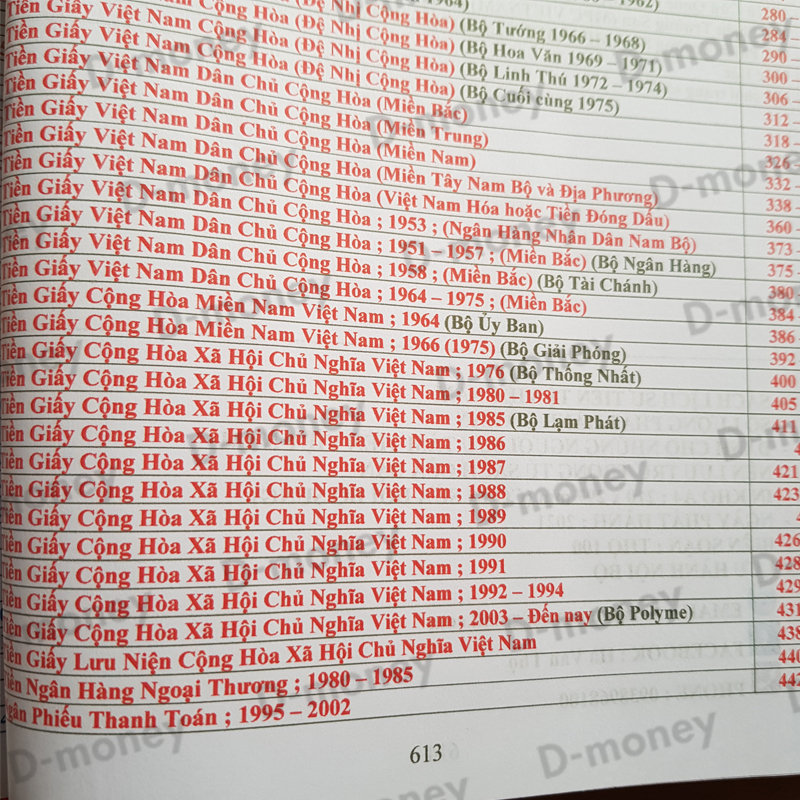 280 –
284 –
Tiền Giấy Việt Nam Cộng Hòa (Đệ Nhị Cộng Hòa) (Bộ Tướng 1966 – 1968) 290 –
Tiền Giấy Việt Nam Cộng Hòa (Đệ Nhị Cộng Hòa) (Bộ Hoa Văn 1969 – 1971) 300 –
Tiền Giấy Việt Nam Cộng Hòa (Đệ Nhị Cộng Hòa) (Bộ Linh Thú 1972 – 1974) 306 –
Tiền Giấy Việt Nam Cộng Hòa (Đệ Nhị Cộng Hòa) (Bộ Cuối cùng 1975) 312 –
Tiền Giấy Việt Nam Dân Chủ Cộng Hòa (Miền Bắc) 318 –
Tiền Giấy Việt Nam Dân Chủ Cộng Hòa (Miền Trung) 326 –
Tiền Giấy Việt Nam Dân Chủ Cộng Hòa (Miền Nam) 332 –
Tiền Giấy Việt Nam Dân Chủ Cộng Hòa (Miền Tây Nam Bộ và Địa Phương) 338 –
Tiền Giấy Việt Nam Dân Chủ Cộng Hòa (Việt Nam Hóa hoặc Tiền Đóng Dấu) 360 –
Tiền Giấy Việt Nam Dân Chủ Cộng Hòa ; 1953 ; (Ngân Hàng Nhân Dân Nam Bộ) 373 –
Tiền Giấy Việt Nam Dân Chủ Cộng Hòa ; 1951 – 1957 ; (Miền Bắc) (Bộ Ngân Hàng) 375 –
Tiền Giấy Việt Nam Dân Chủ Cộng Hòa ; 1958 ; (Miền Bắc) (Bộ Tài Chánh) 380
Tiền Giấy Việt Nam Dân Chủ Cộng Hòa ; 1964 – 1975 ; (Miền Bắc) 384
Tiền Giấy Cộng Hòa Miền Nam Việt Nam ; 1964 (Bộ Ủy Ban) 386
Tiền Giấy Cộng Hòa Miền Nam Việt Nam ; 1966 (1975) (Bộ Giải Phóng) 392
Tiền Giấy Cộng Hòa Xã Hội Chủ Nghĩa Việt Nam ; 1976 (Bộ Thống Nhất) 400
Tiền Giấy Cộng Hòa Xã Hội Chủ Nghĩa Việt Nam ; 1980 – 1981 405
Tiền Giấy Cộng Hòa Xã Hội Chủ Nghĩa Việt Nam ; 1985 (Bộ Lạm Phát) 411
Tiền Giấy Cộng Hòa Xã Hội Chủ Nghĩa Việt Nam ; 1986
Tiền Giấy Cộng Hòa Xã Hội Chủ Nghĩa Việt Nam ; 1987 421
Tiền Giấy Cộng Hòa Xã Hội Chủ Nghĩa Việt Nam ; 1988 423
Tiền Giấy Cộng Hòa Xã Hội Chủ Nghĩa Việt Nam ; 1989
Tiền Giấy Cộng Hòa Xã Hội Chủ Nghĩa Việt Nam ; 1990 426
Tiền Giấy Cộng Hòa Xã Hội Chủ Nghĩa Việt Nam ; 1991 428
Tiền Giấy Cộng Hòa Xã Hội Chủ Nghĩa Việt Nam ; 1992 – 1994 429
Tiền Giấy Cộng Hòa Xã Hội Chủ Nghĩa Việt Nam ; 2003 – Đến nay (Bộ Polyme) 431
Tiền Giấy Lưu Niện Cộng Hòa Xã Hội Chủ Nghĩa Việt Nam 438
Tiền Ngân Hàng Ngoại Thương ; 1980 – 1985 440
Ngân Phiếu Thanh Toán ; 1995 – 2002 442
613
D-money